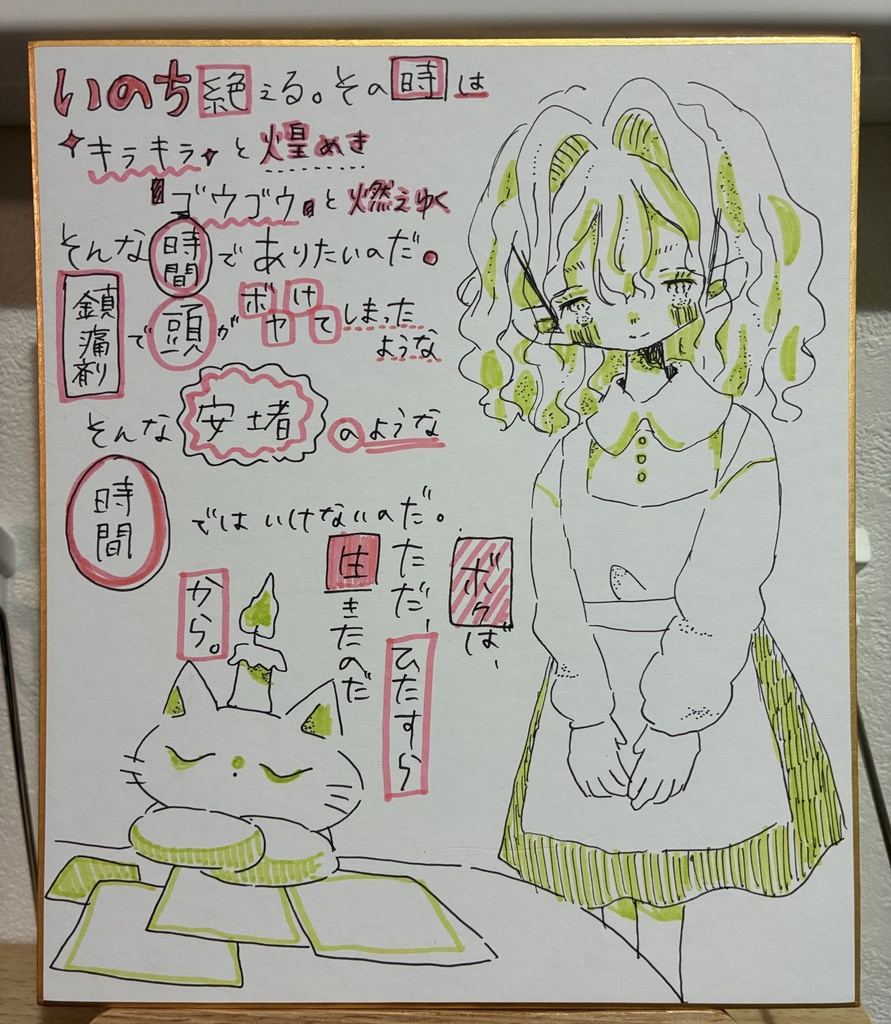 いのち絶える。その時は
キラキラと煌めき
ゴウゴウと燃えゆく
そんな時間でありたいのだ。
鎮痛剤で頭がボヤけてしまった
ような
そんな安堵のような
時間ではいけないのだ。
ボクは、
ただ、ひたすら
生きたのだ
から。